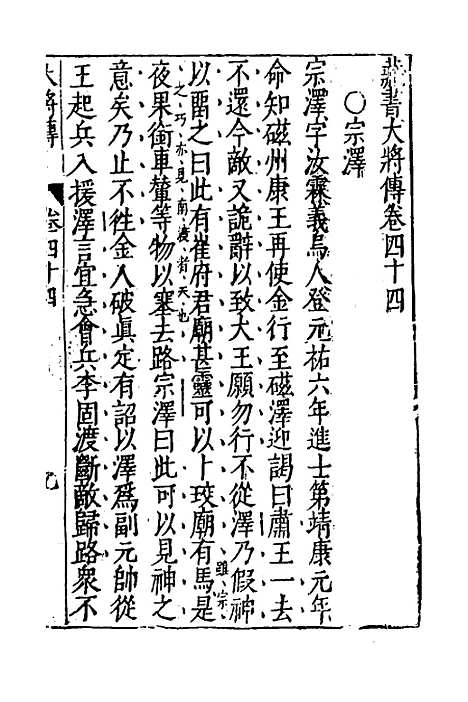 書大將傳卷四十四
○宗澤
宗澤字汝霖義烏人登元祐六年進士第靖康元年
命知磁州康王再使金行至磁澤迎謁曰肅王一去
不還今敵又詭辭以致大王願勿行不從澤乃假神
以畱之曰此有崔府君廟甚靈可以卜珓廟有馬是
雖宗之巧亦見南渡者天也
夜果銜車輦等物以塞去路宗澤曰此可以見神之
意矣乃止不徃金人破眞定有詔以澤爲副元帥從
王起兵入援澤言宜急會兵李固渡斷敵歸路衆不
大將傳 卷四十四